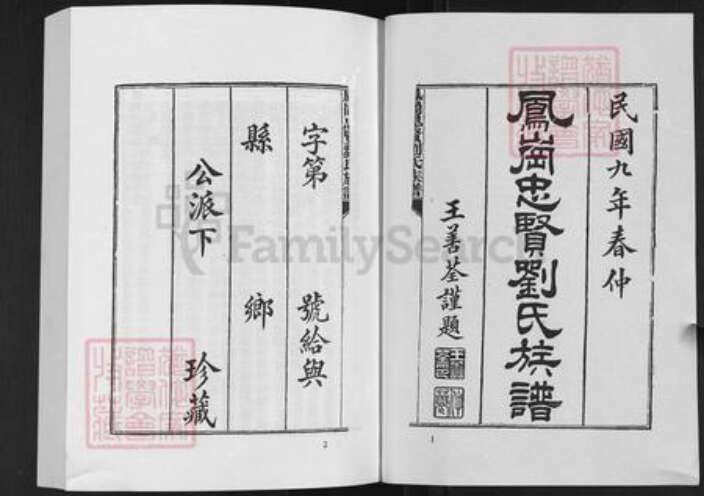 民國九年春仲
鳳崗忠賢劉氏族譜
王善荃謹題
1
字第 號給與
縣 鄉
公派下 珍藏
2
FamilySearch